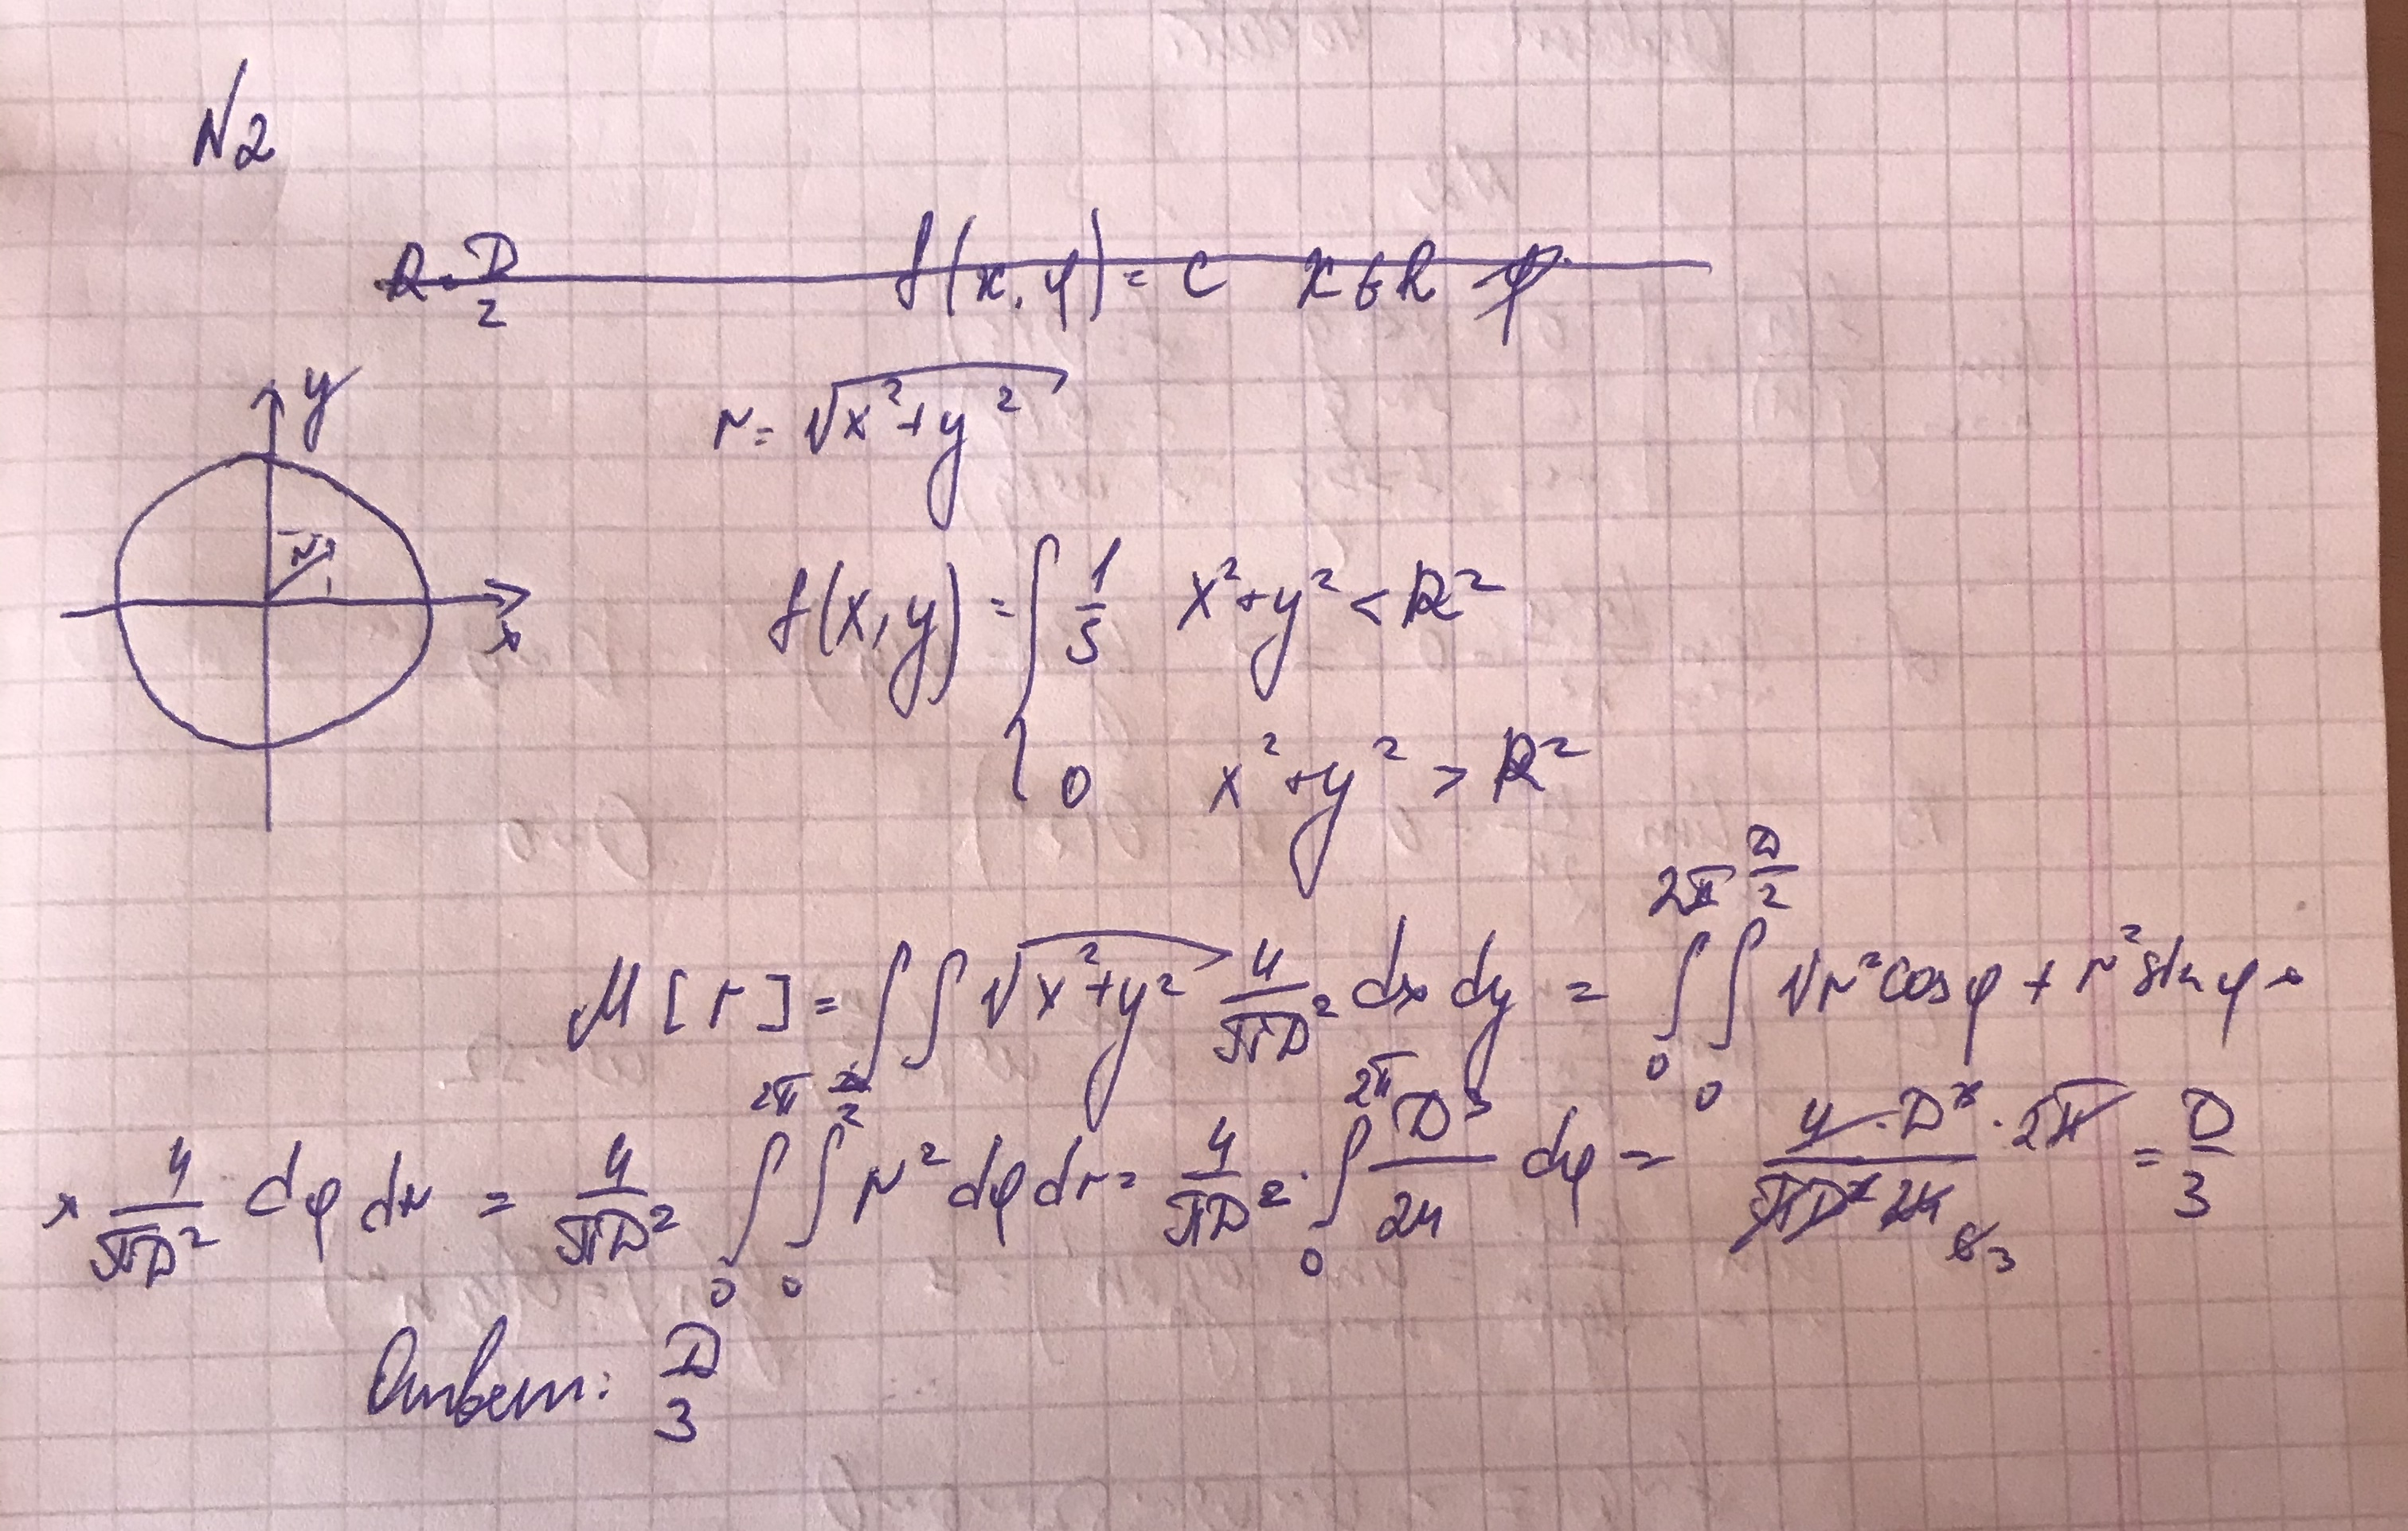 N2
R = D/2 f(x, φ) = c x ∈ R φ
y
r = √(x² + y²)
r
x
f(x, y) = { 1/S x² + y² < R²
0 x² + y² > R²
M[r] = ∫∫ √(x² + y²) 4/(πD²) dx dy = ∫₀^{2π} ∫₀^{D/2} √r² cos φ + r² sin φ ×
× 4/(πD²) dφ dr = 4/(πD²) ∫₀^{2π} ∫₀^{D/2} r² dφ dr = 4/(πD²) · ∫₀^{2π} D³/24 dφ = (4 · D³)/(πD² 24) · 2π = D/3
Ответ: D/3